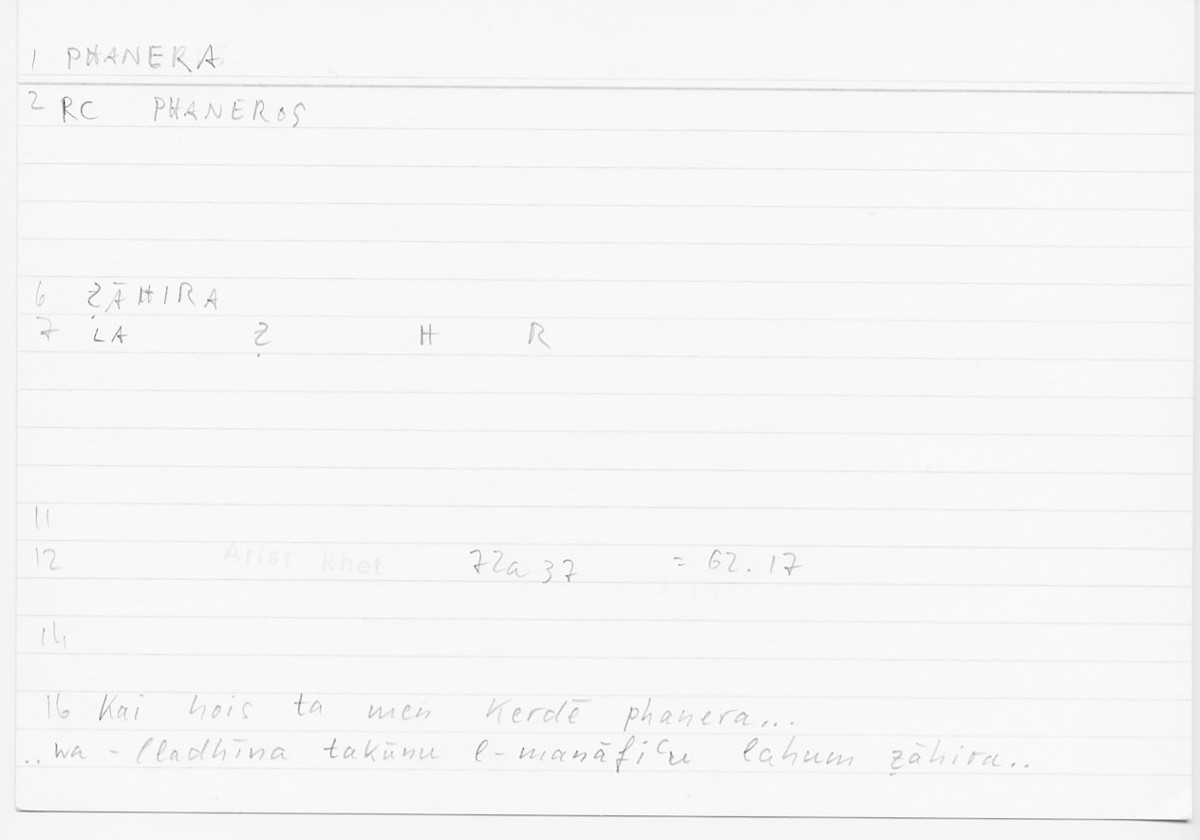 1 PHANERA
2 RC PHANEROS
6 ẒĀHIRA
7 LA Ẓ H R
11
12 Arist Rhet 72a 37 = 62.17
14
16 Kai hois ta men Kerdē phanera...
..wa-lladhīna takūnu l-manāfiʿu lahum ẓāhira..